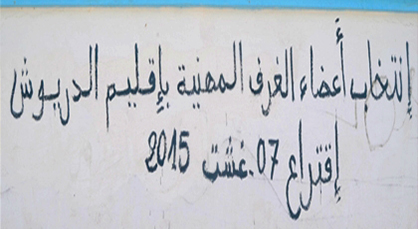 إنتخاب أعضاء الغرف المهنية بإقليم الدريوش
إقتراع 07 غشت 2015